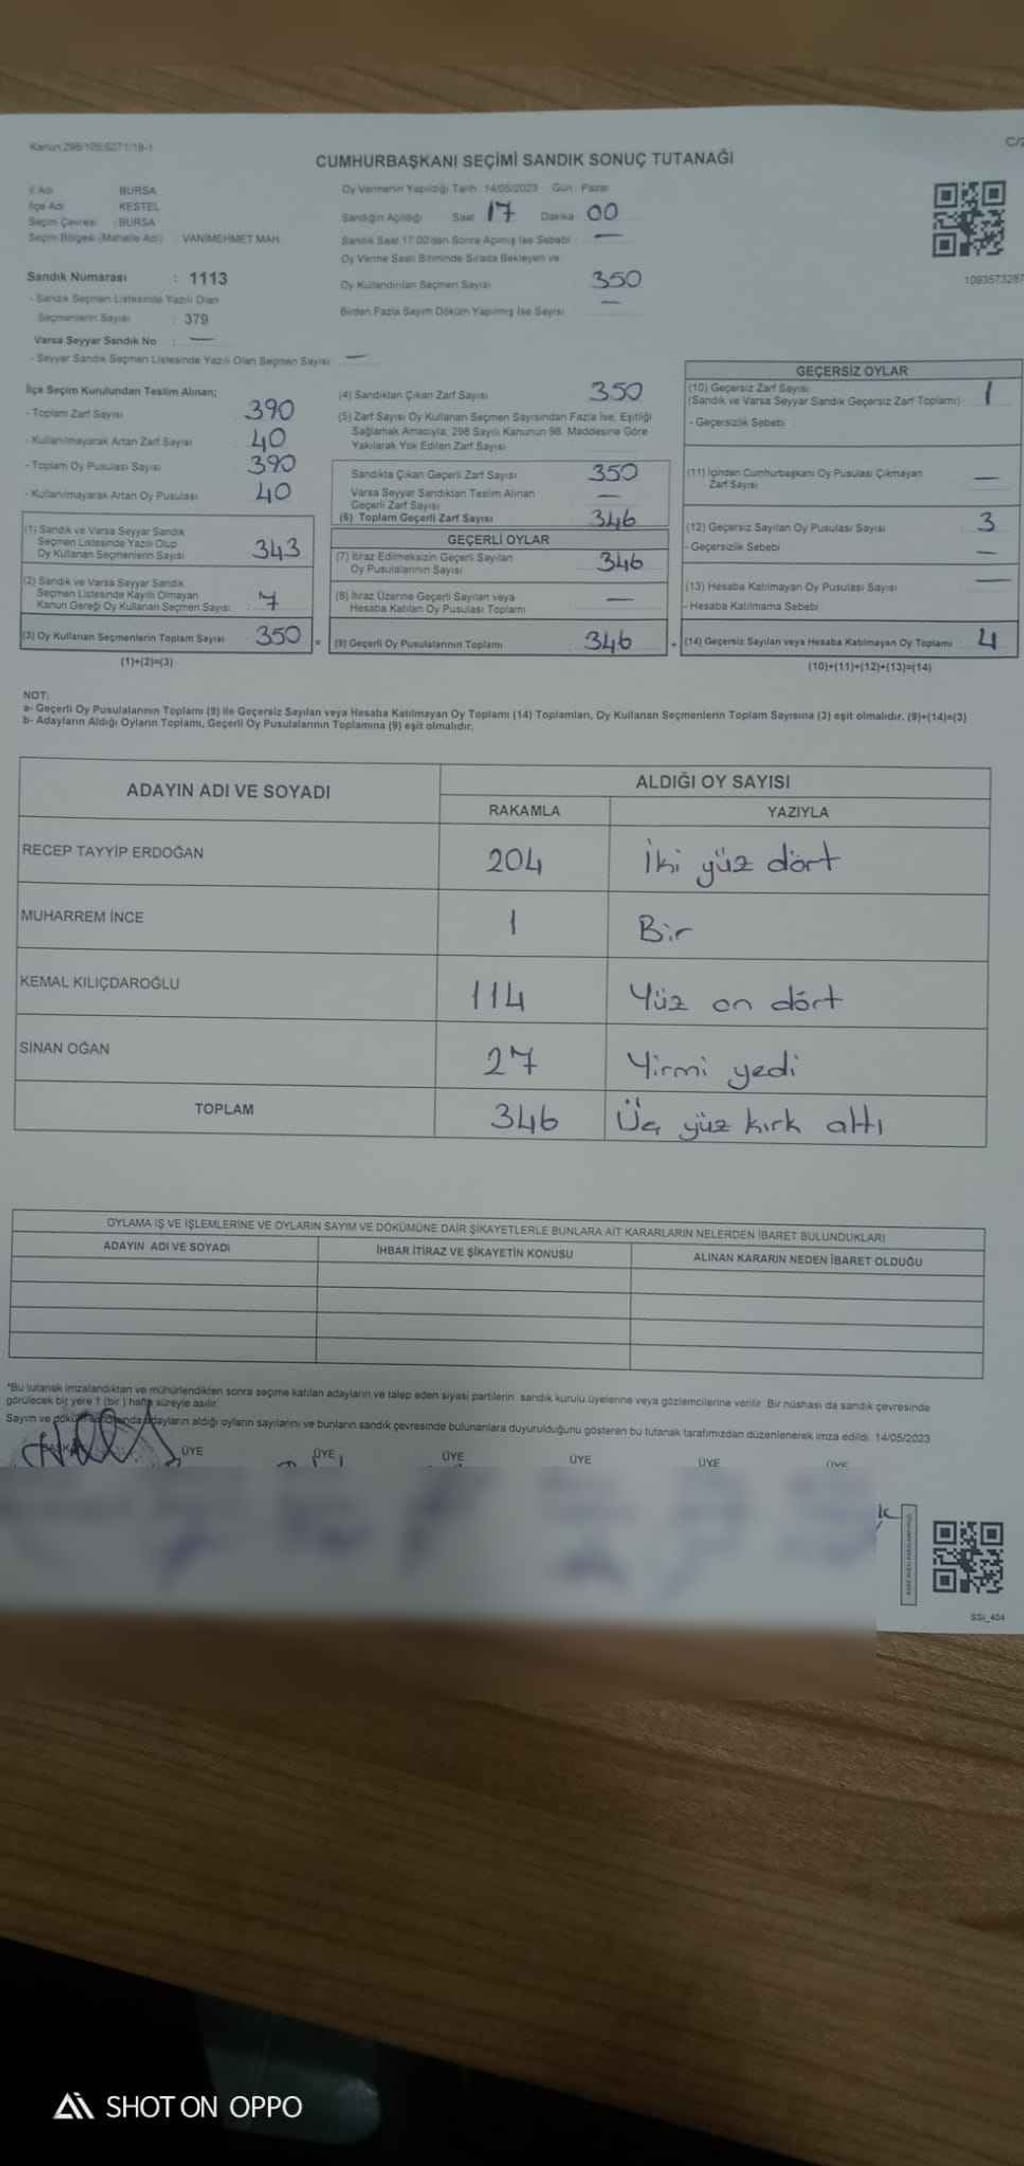 Kanun 298/105,6271/19-1
C/2
CUMHURBAŞKANI SEÇİMİ SANDIK SONUÇ TUTANAĞI
İl Adı BURSA
İlçe Adı KESTEL
Seçim Çevresi : BURSA
Seçim Bölgesi (Mahalle Adı) : VANİMEHMET MAH.
Oy Vermenin Yapıldığı Tarih : 14/05/2023 Gün : Pazar
Sandığın Açıldığı Saat 17 Dakika 00
Sandık Saat 17:00'dan Sonra Açılmış İse Sebebi —
Oy Verme Saati Bitiminde Sırada Bekleyen ve
Oy Kullandırılan Seçmen Sayısı 350
Birden Fazla Sayım Döküm Yapılmış İse Sayısı —
Sandık Numarası : 1113
- Sandık Seçmen Listesinde Yazılı Olan
Seçmenlerin Sayısı : 379
Varsa Seyyar Sandık No : —
- Seyyar Sandık Seçmen Listesinde Yazılı Olan Seçmen Sayısı —
İlçe Seçim Kurulundan Teslim Alınan;
- Toplam Zarf Sayısı 390
- Kullanılmayarak Artan Zarf Sayısı 40
- Toplam Oy Pusulası Sayısı 390
- Kullanılmayarak Artan Oy Pusulası 40
(1) Sandık ve Varsa Seyyar Sandık
Seçmen Listesinde Yazılı Olup
Oy Kullanan Seçmenlerin Sayısı 343
(2) Sandık ve Varsa Seyyar Sandık
Seçmen Listesinde Kayıtlı Olmayan
Kanun Gereği Oy Kullanan Seçmen Sayısı 7
(3) Oy Kullanan Seçmenlerin Toplam Sayısı 350 =
(1)+(2)=(3)
(4) Sandıktan Çıkan Zarf Sayısı 350
(5) Zarf Sayısı Oy Kullanan Seçmen Sayısından Fazla İse, Eşitliği
Sağlamak Amacıyla, 298 Sayılı Kanunun 98. Maddesine Göre
Yakılarak Yok Edilen Zarf Sayısı
Sandıkta Çıkan Geçerli Zarf Sayısı 350
Varsa Seyyar Sandıktan Teslim Alınan
Geçerli Zarf Sayısı —
(6) Toplam Geçerli Zarf Sayısı 346
GEÇERLİ OYLAR
(7) İtiraz Edilmeksizin Geçerli Sayılan
Oy Pusulalarının Sayısı 346
(8) İtiraz Üzerine Geçerli Sayılan veya
Hesaba Katılan Oy Pusulası Toplamı —
(9) Geçerli Oy Pusulalarının Toplamı 346 +
GEÇERSİZ OYLAR
(10) Geçersiz Zarf Sayısı
(Sandık ve Varsa Seyyar Sandık Geçersiz Zarf Toplamı) 1
- Geçersizlik Sebebi
(11) İçinden Cumhurbaşkanı Oy Pusulası Çıkmayan
Zarf Sayısı —
(12) Geçersiz Sayılan Oy Pusulası Sayısı 3
- Geçersizlik Sebebi —
(13) Hesaba Katılmayan Oy Pusulası Sayısı —
- Hesaba Katılmama Sebebi
(14) Geçersiz Sayılan veya Hesaba Katılmayan Oy Toplamı 4
(10)+(11)+(12)+(13)=(14)
NOT:
a- Geçerli Oy Pusulalarının Toplamı (9) ile Geçersiz Sayılan veya Hesaba Katılmayan Oy Toplamı (14) Toplamları, Oy Kullanan Seçmenlerin Toplam Sayısına (3) eşit olmalıdır. (9)+(14)=(3)
b- Adayların Aldığı Oyların Toplamı, Geçerli Oy Pusulalarının Toplamına (9) eşit olmalıdır.
ADAYIN ADI VE SOYADI ALDIĞI OY SAYISI
RAKAMLA YAZIYLA
RECEP TAYYİP ERDOĞAN 204 İki yüz dört
MUHARREM İNCE 1 Bir
KEMAL KILIÇDAROĞLU 114 Yüz on dört
SİNAN OĞAN 27 Yirmi yedi
TOPLAM 346 Üç yüz kırk altı
OYLAMA İŞ VE İŞLEMLERİNE VE OYLARIN SAYIM VE DÖKÜMÜNE DAİR ŞİKAYETLERLE BUNLARA AİT KARARLARIN NELERDEN İBARET BULUNDUKLARI
ADAYIN ADI VE SOYADI İHBAR İTİRAZ VE ŞİKAYETİN KONUSU ALINAN KARARIN NEDEN İBARET OLDUĞU
*Bu tutanak imzalandıktan ve mühürlendikten sonra seçime katılan adayların ve talep eden siyasi partilerin sandık kurulu üyelerine veya gözlemcilerine verilir. Bir nüshası da sandık çevresinde
görülecek bir yere 1 (bir) hafta süreyle asılır.
Sayım ve döküm adayların aldığı oyların sayılarını ve bunların sandık çevresinde bulunanlara duyurulduğunu gösteren bu tutanak tarafımızdan düzenlenerek imza edildi. 14/05/2023
ÜYE ÜYE ÜYE ÜYE ÜYE ÜYE
SSi_404
SHOT ON OPPO